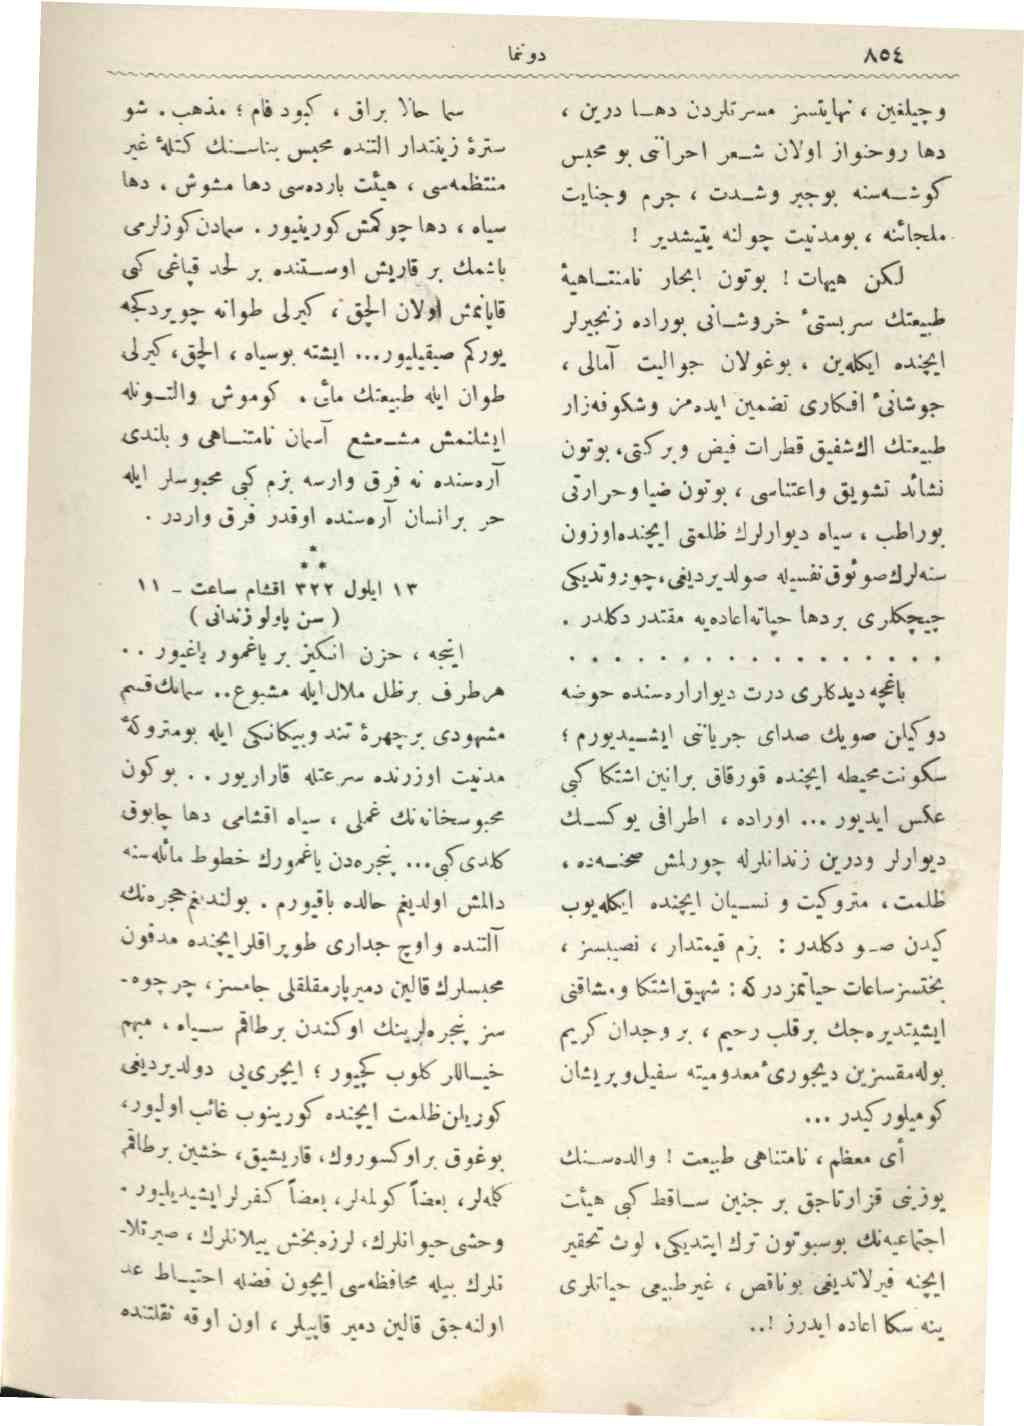 ٨٥٤
دوننما
وجيلغين ، نهايتسز مسرتلردن دها درين ،
دها روحنواز اولان شعر احراننى بو محبس
كوشه‌سنه بوجبر وشدت ، جرم وجنايت
ملجائنه ، بومدنيت چولنه يتيشدير !
لكن هيهات ! بوتون ابحار نامتناهيهٔ
طبيعتك سربستىٔ خروشانى بوراده زنجيرلر
ايچنده ايكله‌ين ، بوغولان جواليت آمالى ،
جوشانىٔ افكارى تضمين ايده‌مز وشكوفه‌زار
طبيعتك اك شفيق قطرات فيض و بركتى، بوتون
نشائد تشويق واعتناسى ، بوتون ضيا وحرارتى
بوراطب ، سياه ديوارلرك ظلمتى ايچنده اوزون
سنه‌لرك صوئوق نفسيله صولديرديغى، چوروتديكى
چيچكلرى بردها حياته اعاده‌يه مقتدر دكلدر .
. . . . . . . . . . . . . . . . .
باغچه ديدكلرى درت ديوار اره‌سنده حوضه
دوكيلن صويك صداى جرياننى ايشيديورم ؛
سكونت محيطه ايچنده قورقاق برانين اشتكا كبى
عكس ايديور ... اوراده ، اطرافى يوكسك
ديوارلر ودرين زندانلرله چورلمش صحنه‌ده ،
ظلمت، متروكيت و نسيان ايچنده ايكله‌يوب
كيدن صو دكلدر : بزم قيمتدار ، نصيبسز ،
بختسز ساعات حياتمزدركه : شهيق اشتكا ومشاقنى
ايشيتديره‌جك برقلب رحيم ، بر وجدان كريم
بوله‌مقسزين ديجورىٔ معدوميته سفيل وپريشان
كوميلور كيدر ...
أى معظم، نامتناهى طبيعت ! والده‌سنك
يوزينى قزارتاجق بر جنين ساقط كبى هيئت
اجتماعيه‌نك بوسبوتون ترك ايتديكى، لوث تحقير
ايچنه فيرلاتديغى بوناقص ، غيرطبيعى حياتلرى
ينه سكا اعاده ايدرز !..
سما حالا براق ، كبود فام ؛ مذهب . شو
سترهٔ زينتدار التنده محبس بناسنك كتلهٔ غير
منتظمه‌سى ، هيئت بارده‌سى دها مشوش ، دها
سياه ، دها چوكمش كورينيور . سمادن كوزلرمى
باشمك بر قاريش اوستنده بر لحد قپاغى كبى
قاپانمش اولان الچق ، كيرلى طوانه چويردكجه
يوركم صيقيليور... ايشته بوسياه ، الچق، كيرلى
طوان ايله طبيعتك مائى ، كوموش والتونله
ايشلنمش مشعشع آسمان نامتناهى و بلندى
آره‌سنده نه فرق وارسه بزم كبى محبوسلر ايله
حر برانسان آره‌سنده اوقدر فرق واردر .
***
١٣ ايلول ٣٢٢ اقشام ساعت ـ ١١
( سن پاولو زندانى )
اينجه ، حزن انكيز بر ياغمور ياغيور . .
هرطرف برظل ملال ايله مشبوع.. سمانك قسم
مشهودى برچهرهٔ تند وبيكانكى ايله بومتروكهٔ
مدنيت اوزرنده سرعتله قاراريور . . بوكون
محبوسخانه‌نك غملى ، سياه اقشامى دها چابوق
كلدى كبى... پنجره‌دن ياغمورك خطوط مائله‌سنه
دالمش اولديغم حالده باقيورم . بولنديغم حجره‌نك
آلتنده واوچ جدارى طوپراقلر ايچنده مدفون
محبسلرك قالين دمير پارمقلقلى جامسز، چرچوه‌ـ
سز پنجره‌لرينك اوكندن برطاقم سياه ، مبهم
خيالر كلوب كچيور ؛ ايچرى‌يى دولديرديغى
كوريلن ظلمت ايچنده كورينوب غائب اوليور،
بوغوق براوكسوروك، قاريشيق، خشين برطاقم
كلمه‌لر، بعضاً كولمه‌لر، بعضاً كفرلر ايشيديليور .
وحشى حيوانلرك، لرزه‌بخش ييلانلرك ، صيرتلاـ
نلرك بيله محافظه‌سى ايچون فضله احتياط عد
اولنه‌جق قالين دمير قاپيلر ، اون اوقه ثقلتنده